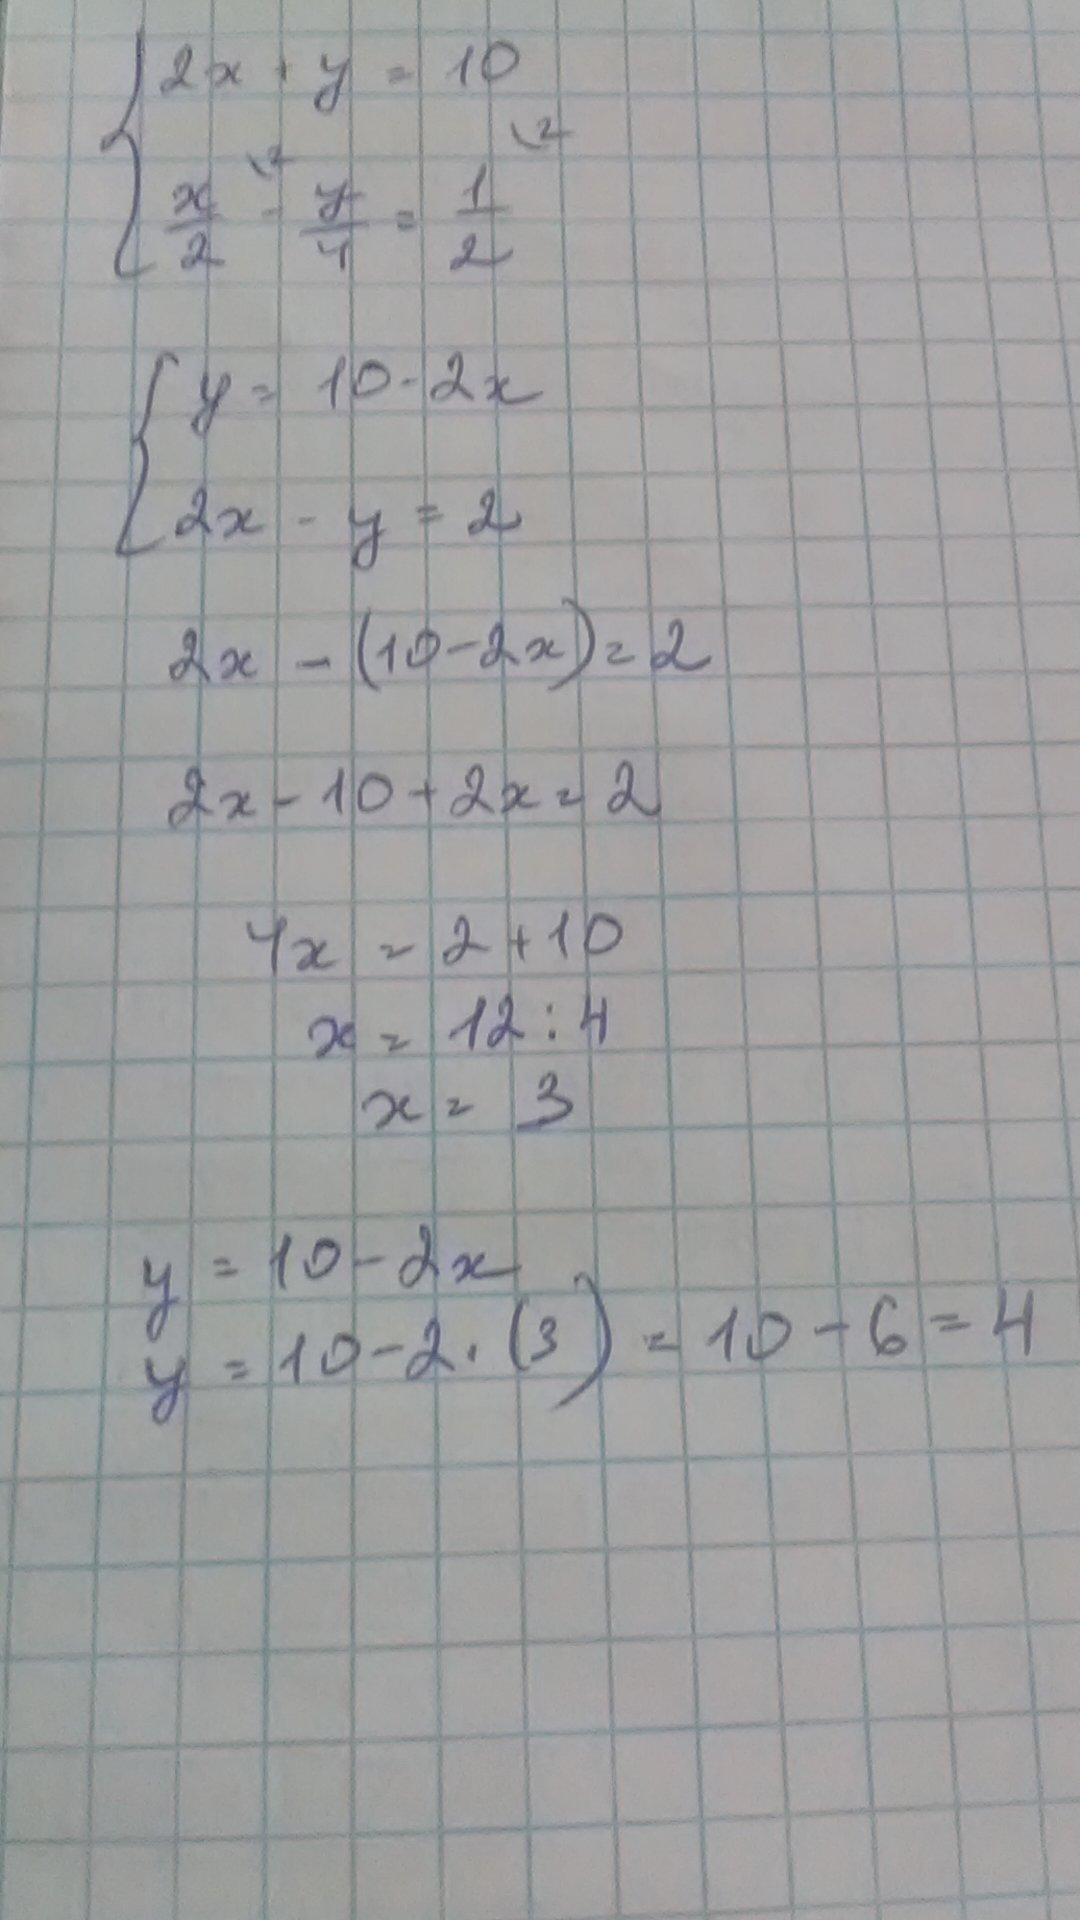 2x + y = 10
x/2 \2 - y/4 = 1/2 \2
y = 10 - 2x
2x - y = 2
2x - (10 - 2x) = 2
2x - 10 + 2x = 2
4x = 2 + 10
x = 12 : 4
x = 3
y = 10 - 2x
y = 10 - 2 · (3) = 10 - 6 = 4